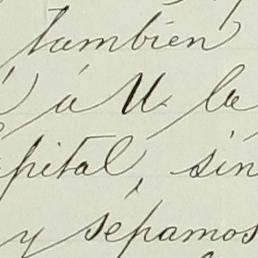 también
á U. la
pital, sin
y sépamos